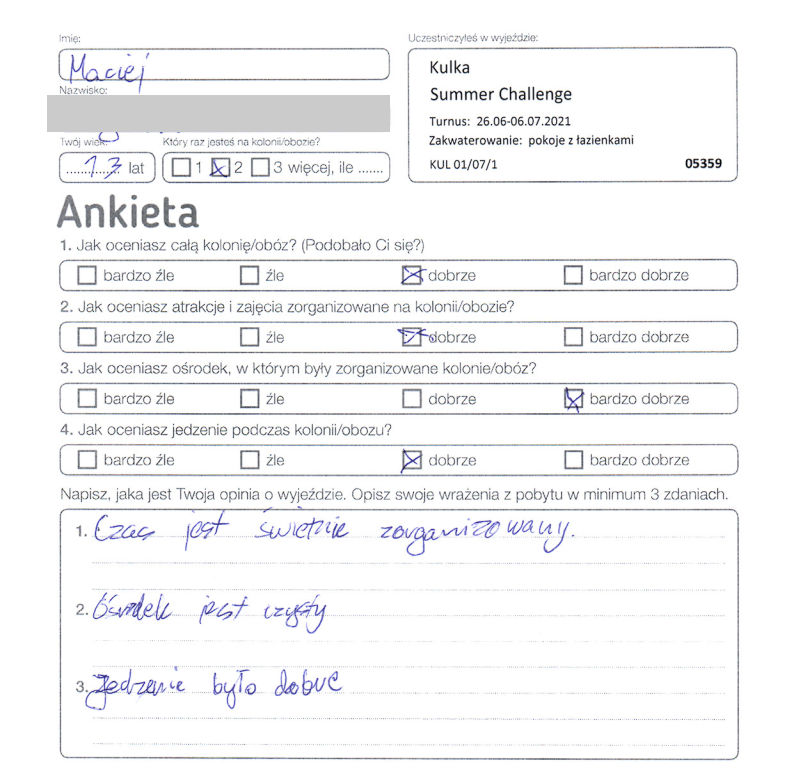 Imię:
Maciej
Nazwisko:
Twój wiek: Który raz jesteś na kolonii/obozie?
13 lat 1 2 3 więcej, ile .......
Uczestniczyłeś w wyjeździe:
Kulka
Summer Challenge
Turnus: 26.06-06.07.2021
Zakwaterowanie: pokoje z łazienkami
KUL 01/07/1 05359
Ankieta
1. Jak oceniasz całą kolonię/obóz? (Podobało Ci się?)
bardzo źle źle dobrze bardzo dobrze
2. Jak oceniasz atrakcje i zajęcia zorganizowane na kolonii/obozie?
bardzo źle źle dobrze bardzo dobrze
3. Jak oceniasz ośrodek, w którym były zorganizowane kolonie/obóz?
bardzo źle źle dobrze bardzo dobrze
4. Jak oceniasz jedzenie podczas kolonii/obozu?
bardzo źle źle dobrze bardzo dobrze
Napisz, jaka jest Twoja opinia o wyjeździe. Opisz swoje wrażenia z pobytu w minimum 3 zdaniach.
1. Czas jest świetnie zorganizowany.
2. Ośrodek jest czysty
3. Jedzenie było dobre